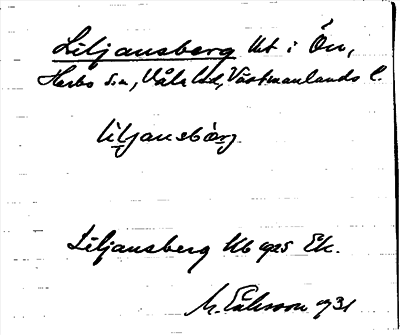 Liljansberg lht i Ön,
Herbo s:n, Våla hd, Västmanlands l.
liljansbärj.
Liljansberg Kb 1925 Ek.
M. Eriksson 1931